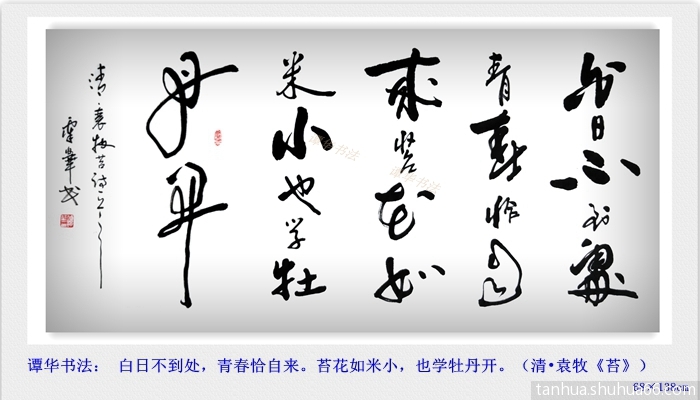 白日不到處
青春恰自
来苔花如
米小也学牡
丹开
清·袁牧苔诗一首
谭华书法
谭华书法
谭华书法： 白日不到处，青春恰自来。苔花如米小，也学牡丹开。（清•袁牧《苔》）
88×138cm